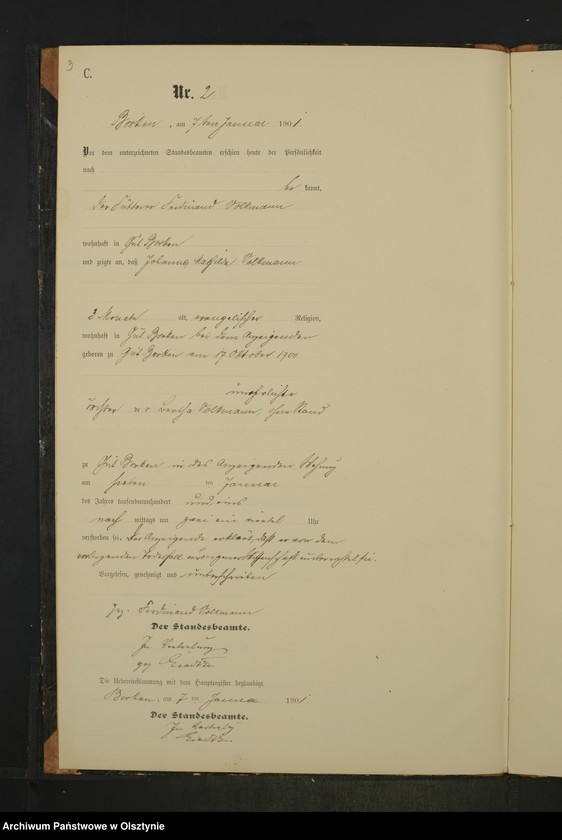 3
C.
Nr. 2
Borken, am 7ten Januar 1901
Vor dem unterzeichneten Standesbeamten erschien heute der Persönlichkeit
nach
be kannt,
der Ferdinand Volkmann
wohnhaft in Gut Borken
und zeigte an, daß Johanna Volkmann
3 Monate alt, evangelischer Religion,
wohnhaft in Gut Borken bei dem Anzeigenden
geboren zu Gut Borken am 17. Oktober 1900
unehelichte
Tochter der Bertha Volkmann, ohne Stand
zu Gut Borken in des Anzeigenden Wohnung
am sieben ten Januar
des Jahres tausendneunhundert und eins
nach mittags um zwei ein viertel Uhr
verstorben sei. Der Anzeigende erklärt, daß er von dem
vorliegenden Todesfall aus eigener Wissenschaft unterrichtet sei.
Vorgelesen, genehmigt und unterschrieben
gez. Ferdinand Volkmann
Der Standesbeamte.
In Vertretung
gez.
Die Uebereinstimmung mit dem Hauptregister beglaubigt
Borken, am 7 ten Januar 1901.
Der Standesbeamte.
In Vertretung
Archiwum Państwowe w Olsztynie